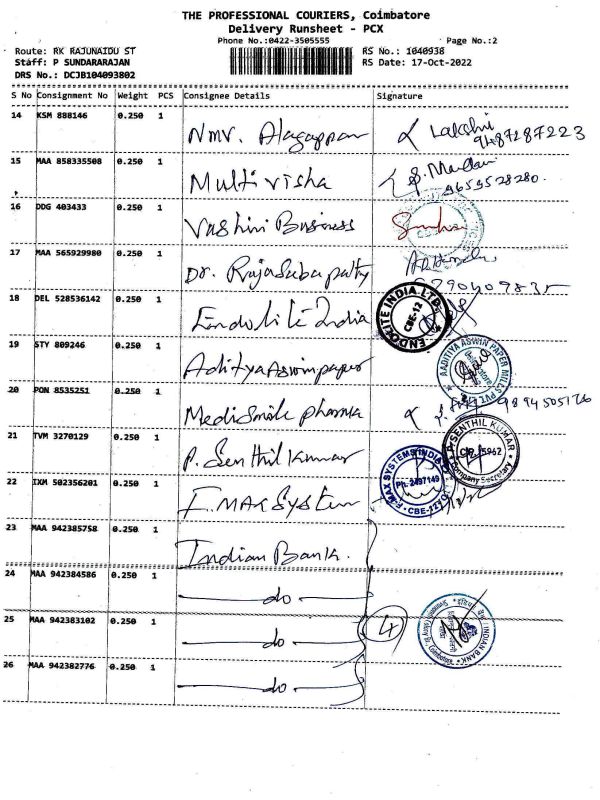 THE PROFESSIONAL COURIERS, Coimbatore
Delivery Runsheet - PCX
Phone No.:0422-3505555
Page No.:2
Route: RK RAJUNAIDU ST
RS No.: 1040938
Staff: P SUNDARARAJAN
RS Date: 17-Oct-2022
DRS No.: DCJB104093802
S No Consignment No Weight PCS Consignee Details Signature
14 KSM 888146 0.250 1
Nmv. Alagappan Lakshmi
9487287223
15 MAA 858335508 0.250 1
Multi visha
9659528280
16 DDG 403433 0.250 1
Vashini Business
17 MAA 565929980 0.250 1
Dr. Rajasabapathy
18 DEL 528536142 0.250 1
Endolite India
ENDOLITE INDIA LTD. CBE-12
19 STY 809246 0.250 1
Aditya Aswin paper
AADITIYA ASWIN PAPER MILLS PVT LTD
20 PON 8535251 0.250 1
MediSmile pharma 9894505176
21 TVM 3270129 0.250 1
P. Senthil Kumar
P. SENTHIL KUMAR
Company Secretary
22 IXM 502356201 0.250 1
F. MAX System
F-MAX SYSTEMS INDIA
Ph: 2497149
CBE-12
23 MAA 942385758 0.250 1
Indian Bank.
24 MAA 942384586 0.250 1
do
25 MAA 942383102 0.250 1
do 4
INDIAN BANK
26 MAA 942382776 0.250 1
do